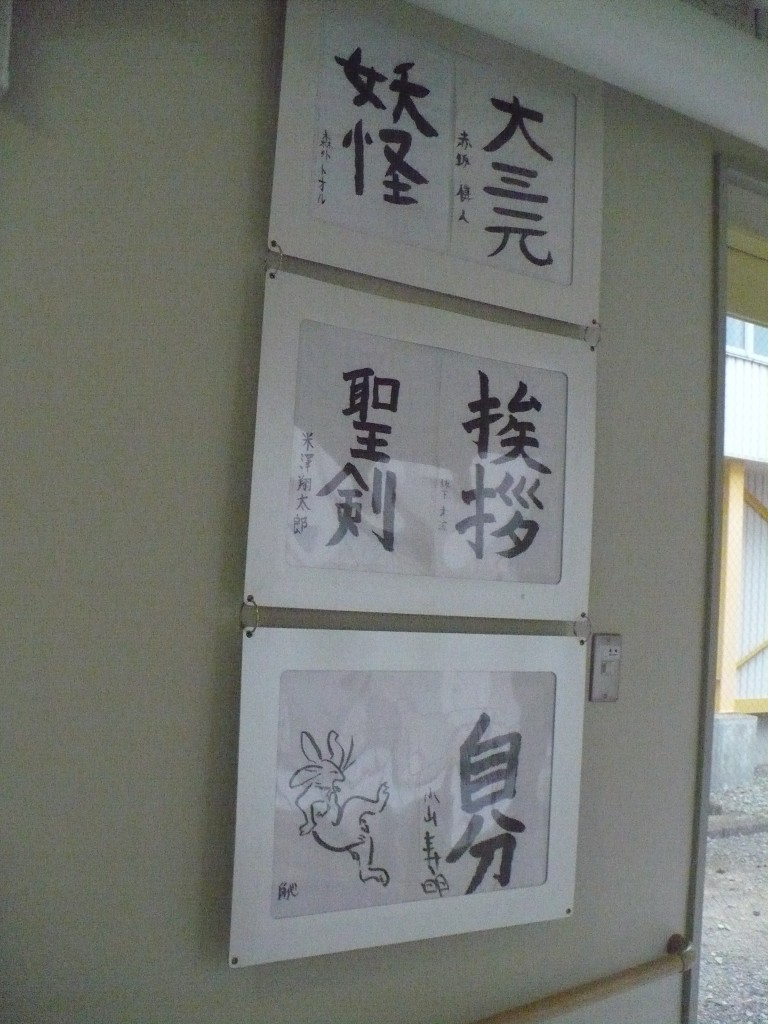 大三元
赤坂 健人
妖怪
森外トオル
挨拶
聖剣
米澤翔太郎
自分
小山寿明